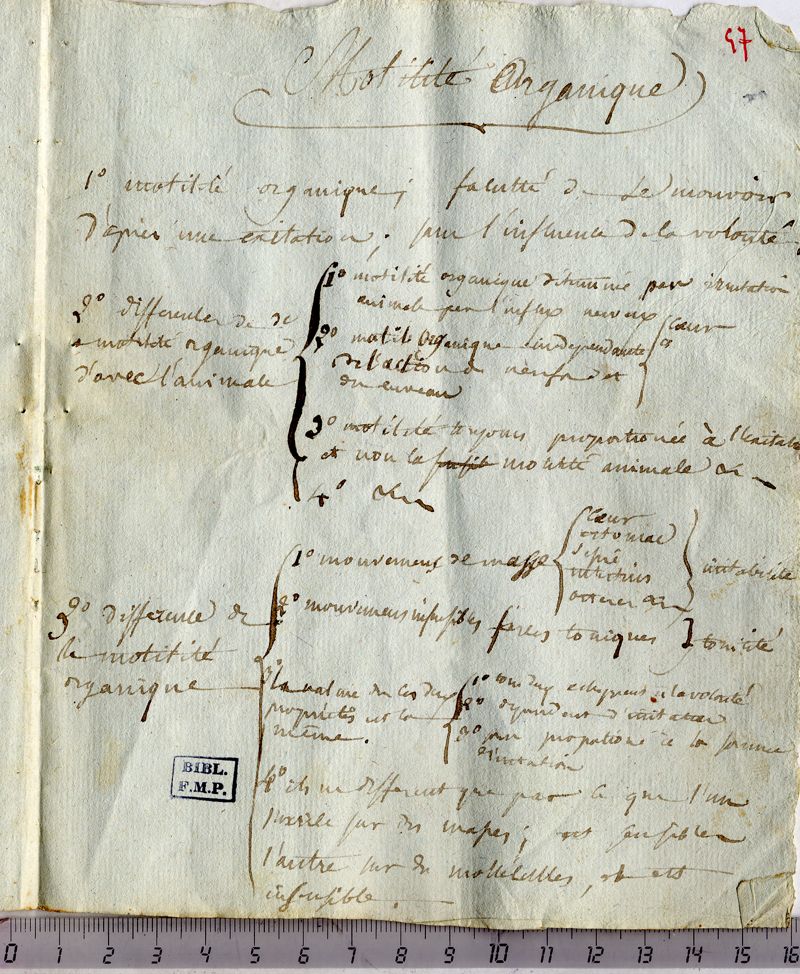 47
Motilité Organique
1º motilité organique; faculté de se mouvoir
d'après une exitation; sur l'influence de la volonté
2º differences de
motilité organique
d'avec l'animale
1º motilité organique determinée par irritation
animale par l'influx nerveux
2º motilé organique independante
de l'action du nerfs et
du cerveau
cœur
&
3º motilité toujours proportionée à l'exitation
et non la motilité animale &
4º &
3º difference de
la motilité
organique
1º mouvemens de masse
cœur
estomac
vessie
intestins
arteres &
irritabilité
2º mouvemens insensibles forces toniques
tonicité
3º la nature de ces deux
proprietés est la
même.
1º tous deux echapent à la volonté
2º dependent d'irritation
3º sont proportioné à la somme
d'irritation
4º ils ne different que par ce que l'un
s'exerce sur des masses; est sensible
l'autre sur des molleculles, et est
insensible.
BIBL.
F.M.P.
0 1 2 3 4 5 6 7 8 9 10 11 12 13 14 15 16